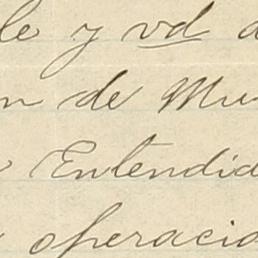 le y vd a
n de Mu
Entendid
operacio